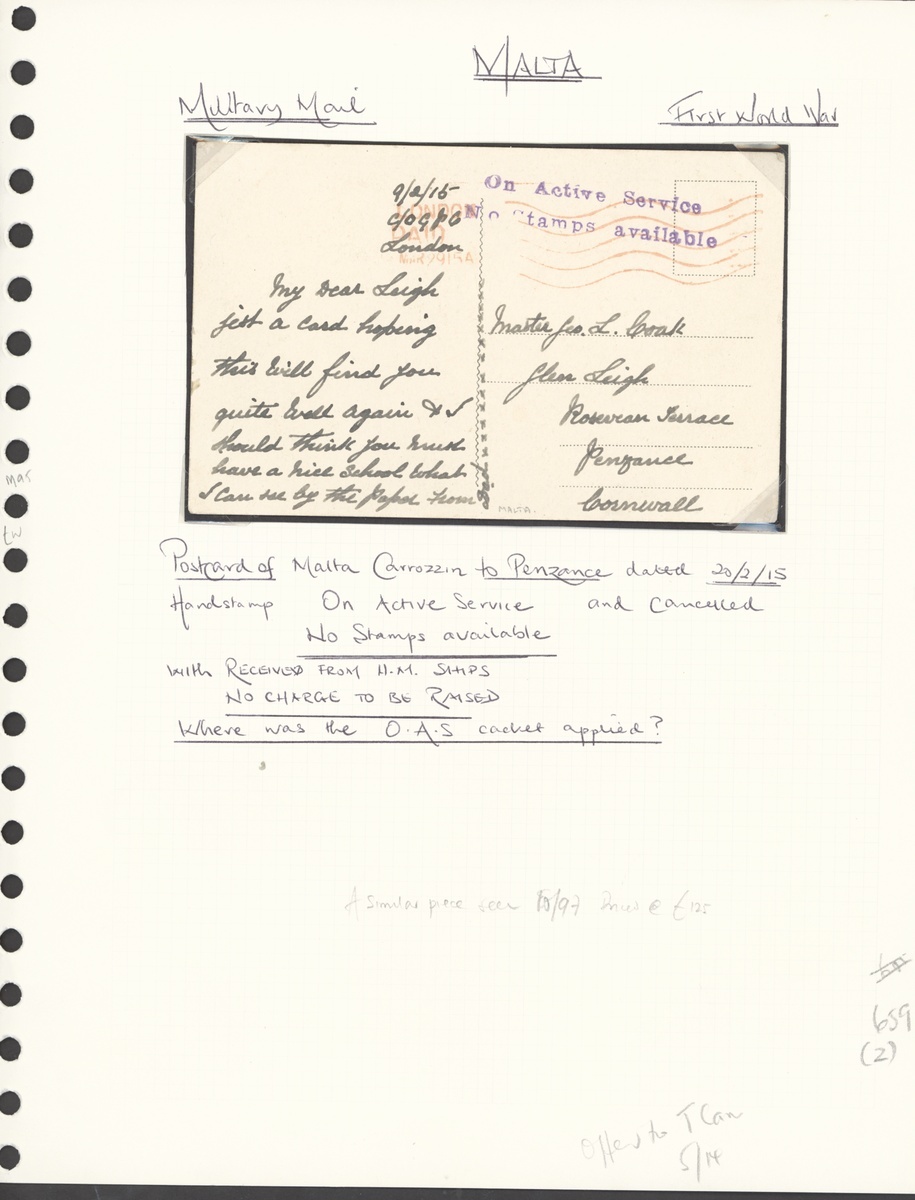 MALTA
Military Mail
First World War
9/2/15
C/O G P O
London
LONDON
PAID
MAR 29 15A
On Active Service
No Stamps available
My Dear Leigh
just a card hoping
this will find you
quite well again & I
should think you must
have a nice school what
I can see by the paper from
Master Geo. L. Coak
Glen Leigh
Rosevean Terrace
Penzance
Cornwall
MALTA.
Postcard of Malta Carrozzin to Penzance dated 20/2/15
Handstamp On Active Service and cancelled
No Stamps available
with RECEIVED FROM H.M. SHIPS
NO CHARGE TO BE RAISED
Where was the O.A.S cachet applied?
A similar piece seen /97 Priced @ £125
659
(2)
Offered to T Can
5/14